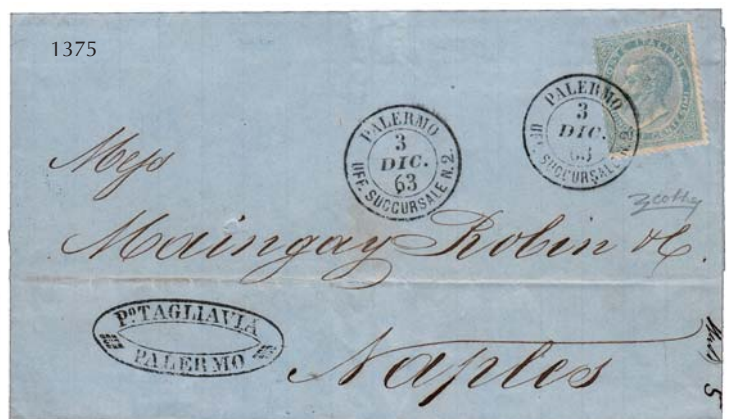 1375
PALERMO
3
DIC.
63
UFF. SUCCURSALE N. 2.
PALERMO
3
DIC.
63
UFF. SUCCURSALE N. 2.
Mess
Maingay Robin & C.
Pº TAGLIAVIA
PALERMO
Naples
5